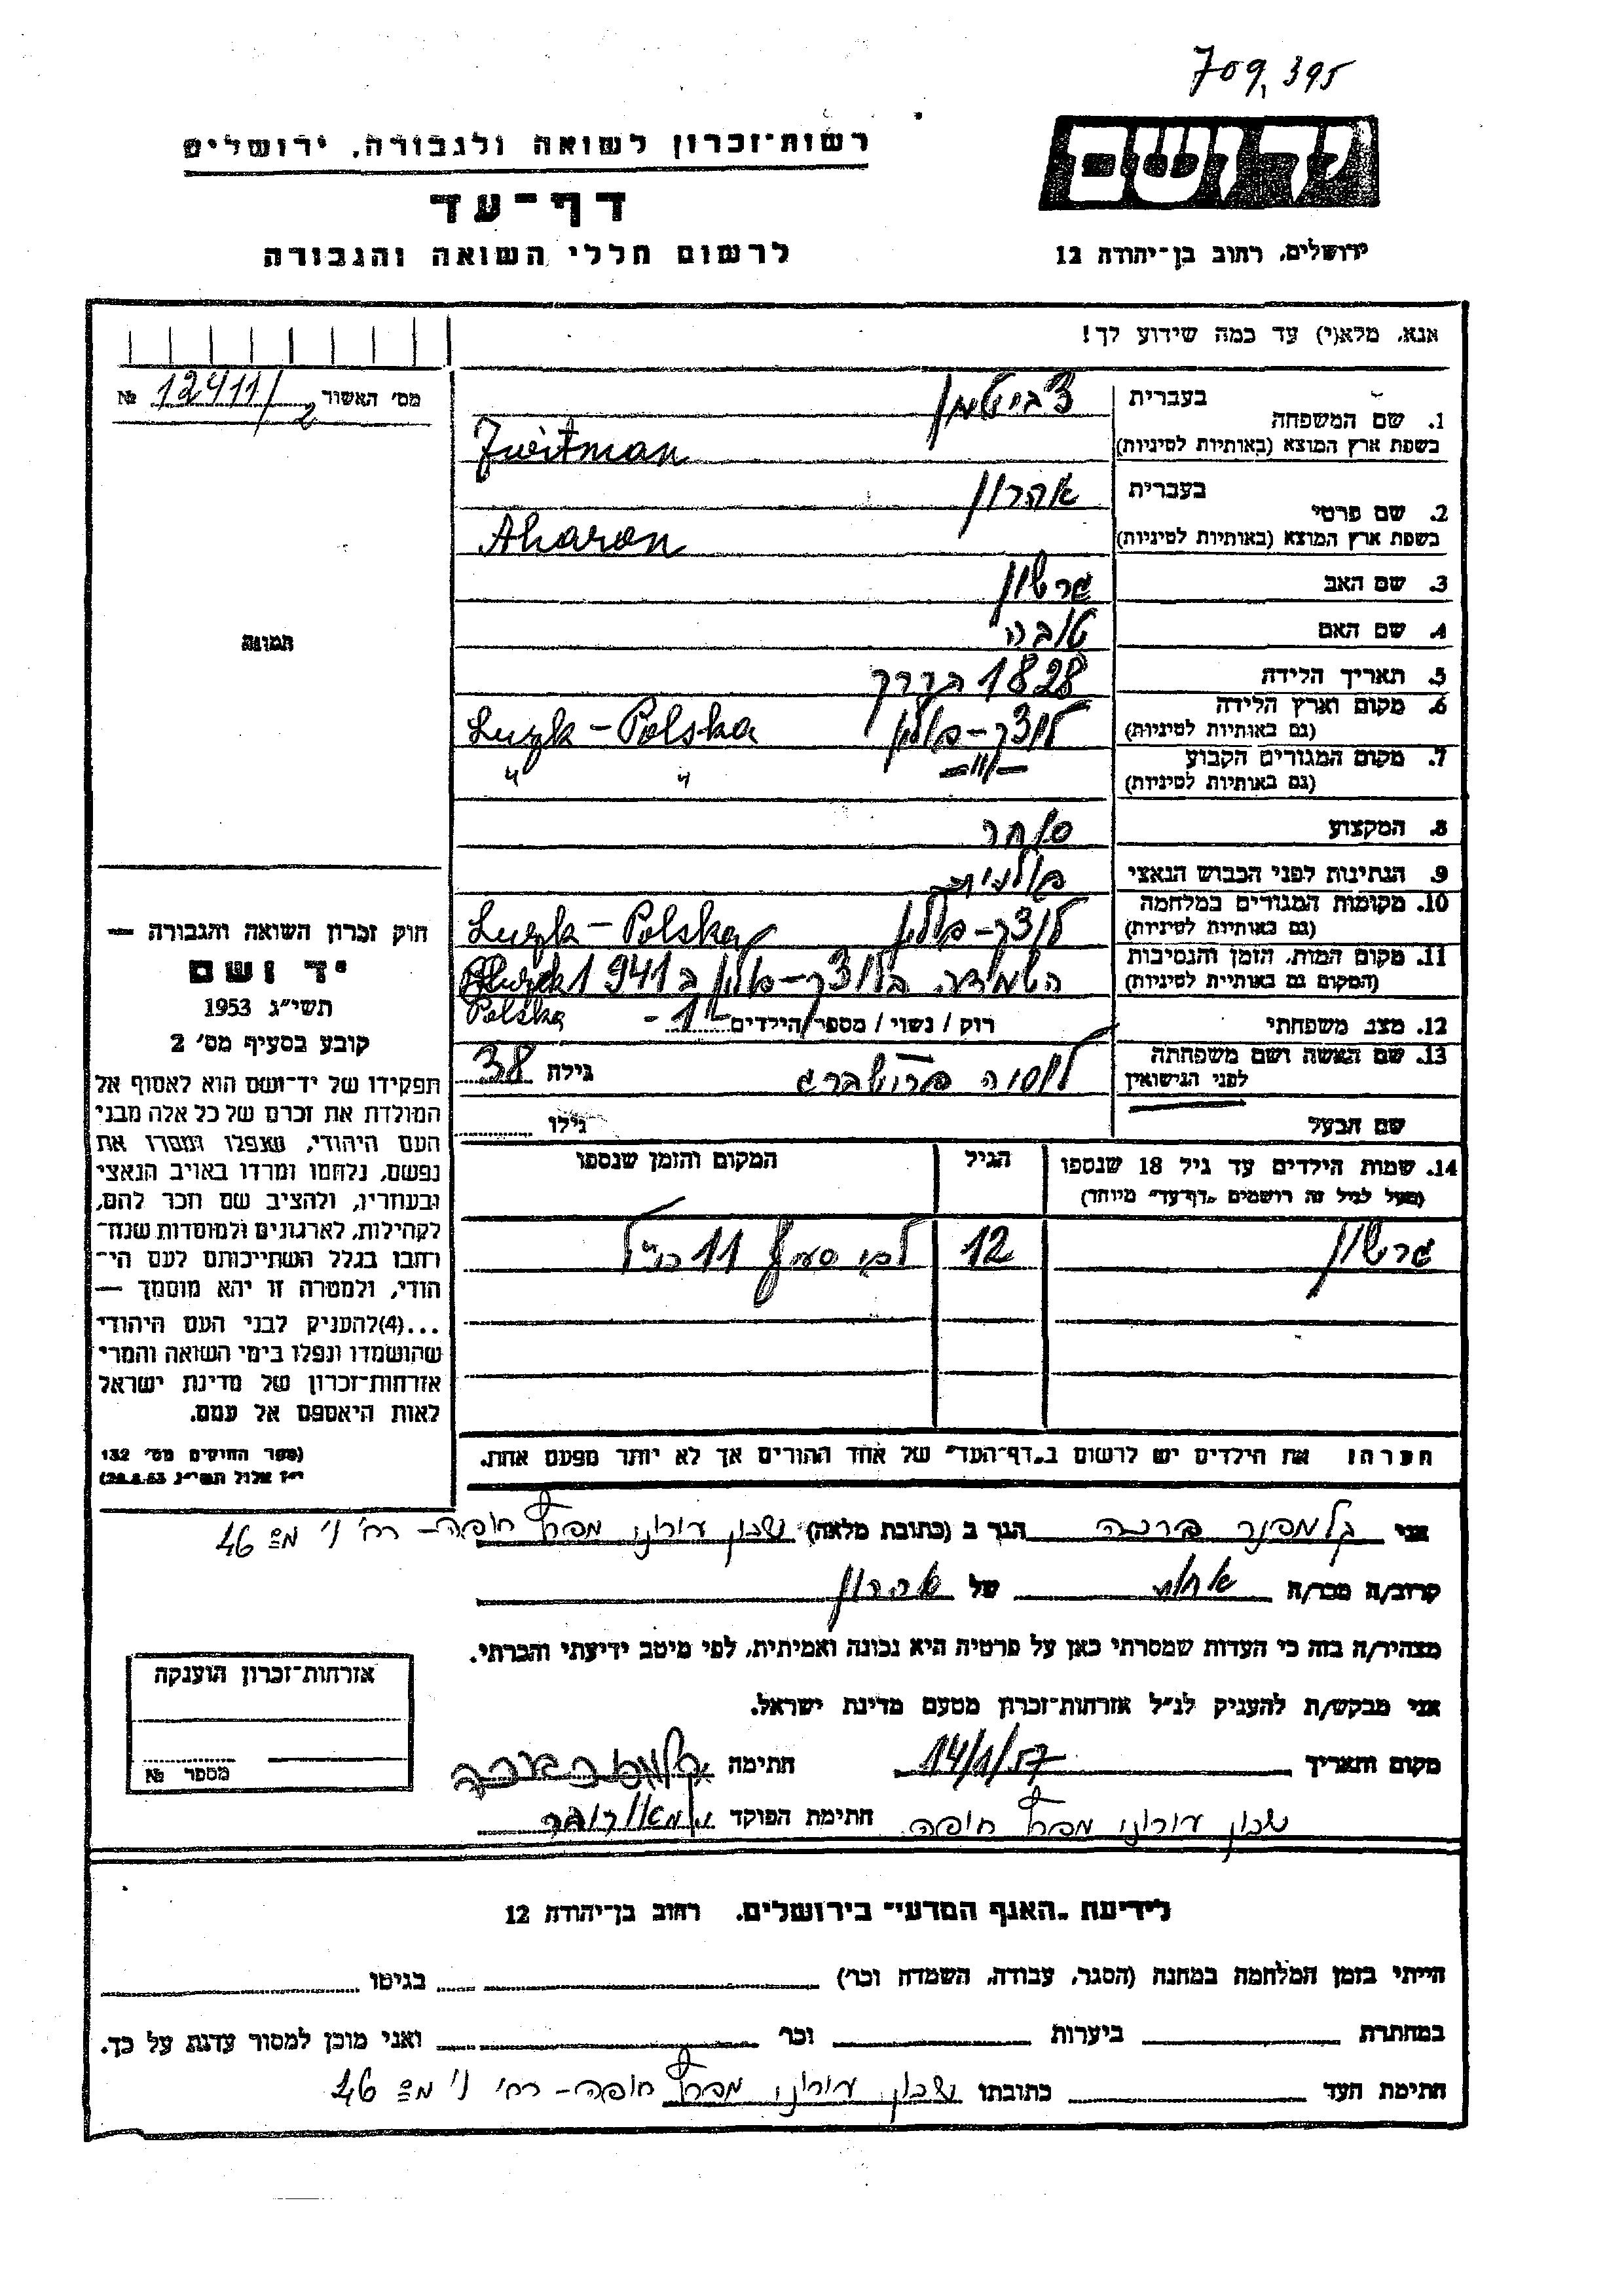 709,395
רשות־זכרון לשואה ולגבורה, ירושלים
יד ושם
דף־עד
לרשום חללי השואה והגבורה
ירושלים, רחוב בן־יהודה 12
אנא, מלא(י) עד כמה שידוע לך!
מס' האשור 12411/2 №
1. שם המשפחה בעברית צביטמן
בשפת ארץ המוצא (באותיות לטיניות) Zweitman
2. שם פרטי בעברית אהרון
בשפת ארץ המוצא (באותיות לטיניות) Aharon
3. שם האב גרשון
4. שם האם טובה
תמונה
5. תאריך הלידה 1828
6. מקום וארץ הלידה לוצק–פולין Luzk–Polska
(גם באותיות לטיניות)
7. מקום המגורים הקבוע –״– ״ ״
(גם באותיות לטיניות)
8. המקצוע סוחר
9. הנתינות לפני הכבוש הנאצי פולנית
10. מקומות המגורים במלחמה לוצק–פולין Luzk–Polska
(גם באותיות לטיניות)
11. מקום המות, הזמן והנסיבות השמדה בלוצק–פולין ב 1941 Luzk
(המקום גם באותיות לטיניות) Polska
12. מצב משפחתי רוק / נשוי / מספר הילדים 1 –
13. שם האשה ושם משפחתה גילה 38
לפני הנישואין
שם הבעל גילו
14. שמות הילדים עד גיל 18 שנספו הגיל המקום והזמן שנספו
(מעל לגיל זה רושמים „דף־עד" מיוחד)
גרשון 12 לפי סעיף 11 הנ״ל
חוק זכרון השואה והגבורה —
יד ושם
תשי״ג 1953
קובע בסעיף מס' 2
תפקידו של יד־ושם הוא לאסוף אל
המולדת את זכרם של כל אלה מבני
העם היהודי, שנפלו ומסרו את
נפשם, נלחמו ומרדו באויב הנאצי
ובעוזריו, ולהציב שם וזכר להם,
לקהילות, לארגונים ולמוסדות שנח־
רבו בגלל השתייכותם לעם הי־
הודי, ולמטרה זו יהא מוסמך —
...(4)להעניק לבני העם היהודי
שהושמדו ונפלו בימי השואה והמרי
אזרחות־זכרון של מדינת ישראל
לאות היאספם אל עמם.
(ספר החוקים מס' 132
י״ז אלול תשי״ג 28.8.53)
הערה: את הילדים יש לרשום ב„דף־העד" של אחד ההורים אך לא יותר מפעם אחת.
אני גלמפנר ברכה הגר ב (כתובת מלאה) שכון עירוני מפרץ חיפה – רח' ני מס 46
קרוב/ה מכר/ה אחות של אהרון
מצהיר/ה בזה כי העדות שמסרתי כאן על פרטיה היא נכונה ואמיתית, לפי מיטב ידיעתי והכרתי.
אני מבקש/ת להעניק לנ״ל אזרחות־זכרון מטעם מדינת ישראל.
אזרחות־זכרון הוענקה
מספר №
מקום ותאריך 14/1/57 חתימה
שכון עירוני מפרץ חיפה. חתימת הפוקד
לידיעת „האגף המדעי" בירושלים, רחוב בן־יהודה 12
הייתי בזמן המלחמה במחנה (הסגר, עבודה, השמדה וכר') בגיטו
במחתרת ביערות וכר' ואני מוכן למסור עדות על כך.
חתימת העד כתובתו שכון עירוני מפרץ חיפה – רח' ני מס 46